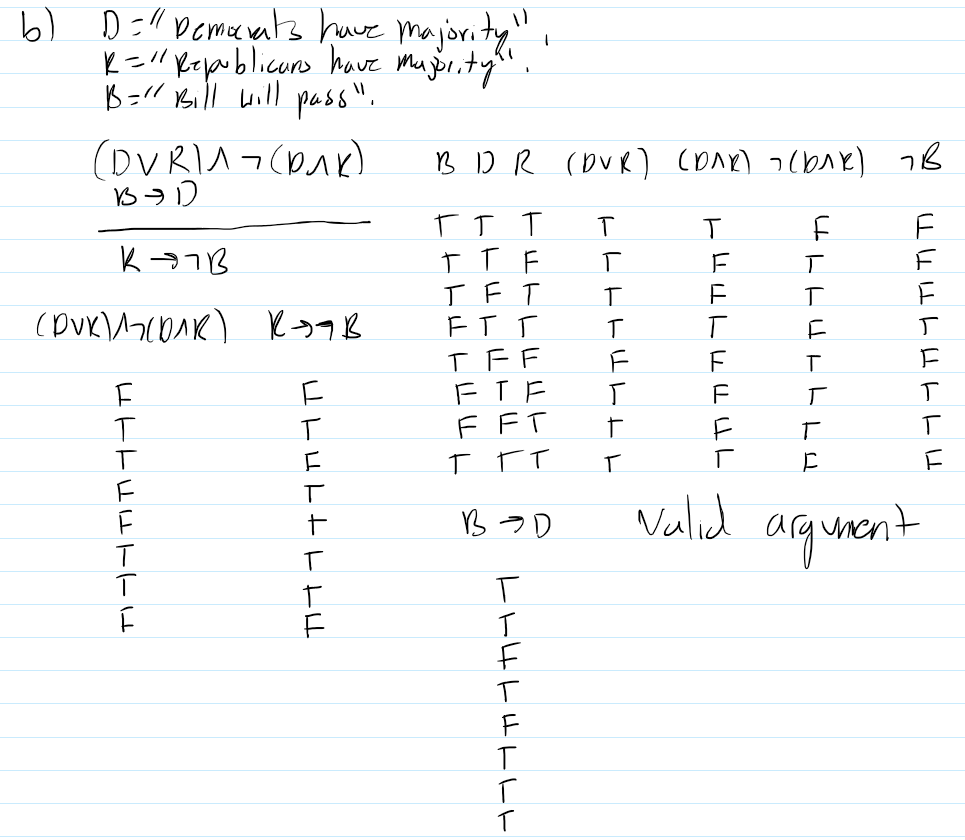 b) D = "Democrats have majority",
R = "Republicans have majority".
B = "Bill will pass".
(D∨R)∧¬(D∧R)
B→D
R→¬B
B D R (D∨R) (D∧R) ¬(D∧R) ¬B
T T T T T F F
T T F T F T F
T F T T F T F
F T T T T F T
T F F F F T F
F T F T F T T
F F T T F T T
T T T T T F F
(D∨R)∧¬(D∧R) R→¬B
F F
T T
T F
F T
F T
T T
T T
F F
B→D Valid argument
T
T
F
T
F
T
T
T